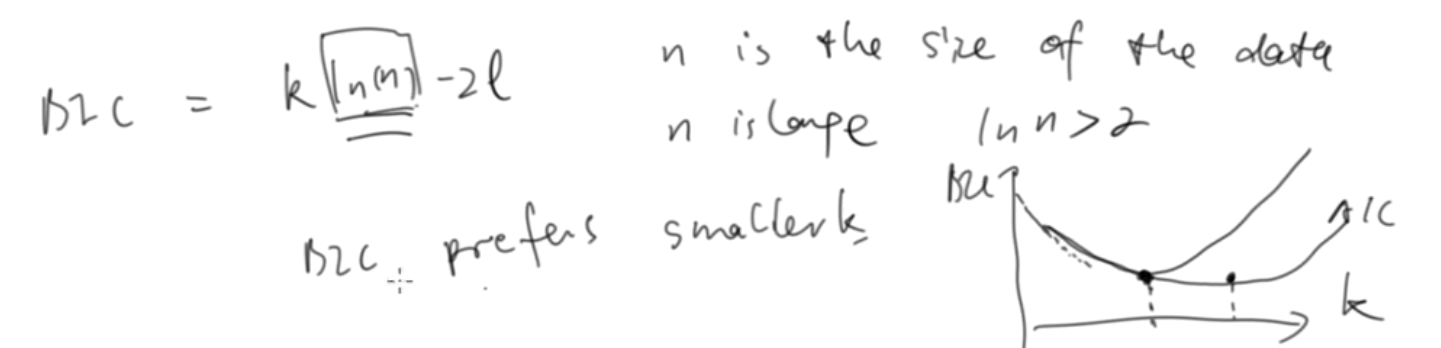 BIC = k ln(n) - 2l
n is the size of the data
n is large ln n > 2
BIC prefers smaller k
BIC
AIC
k